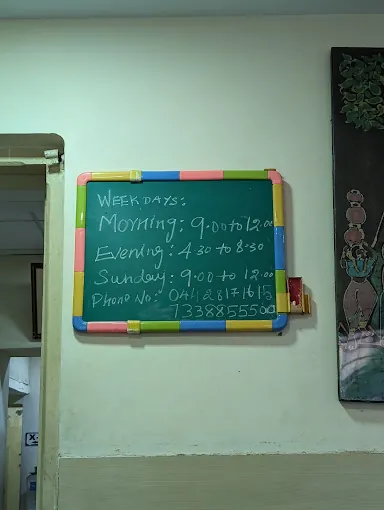 WEEKDAYS:
Morning: 9.00 to 12.00
Evening: 4.30 to 8.30
Sunday: 9.00 to 12.00
Phone No: 044 28171615
7338855500